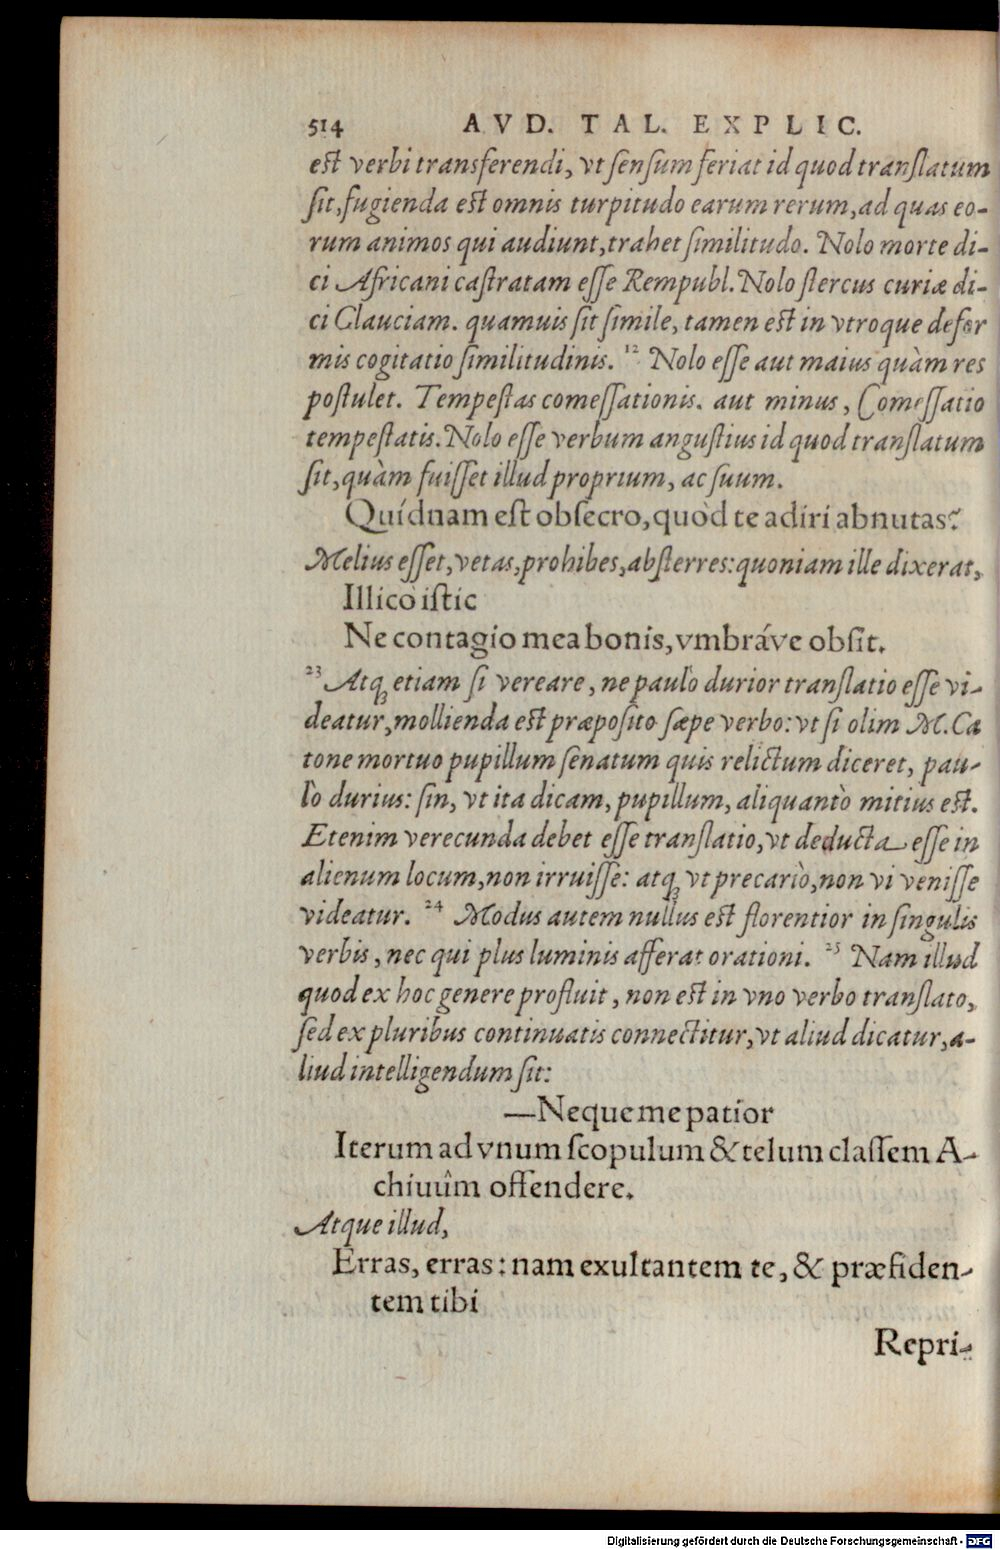 514 AVD. TAL. EXPLIC.
est verbi transferendi, vt sensum feriat id quod translatum
sit, fugienda est omnis turpitudo earum rerum, ad quas eo-
rum animos qui audiunt, trahet similitudo. Nolo morte di-
ci Africani castratam esse Rempubl. Nolo stercus curiæ di-
ci Glauciam. quamuis sit simile, tamen est in vtroque defor
mis cogitatio similitudinis. 12 Nolo esse aut maius quàm res
postulet. Tempestas comessationis. aut minus, Comessatio
tempestatis. Nolo esse verbum angustius id quod translatum
sit, quàm fuisset illud proprium, ac suum.
Quídnam est obsecro, quòd te adiri abnutas?
Melius esset, vetas, prohibes, absterres: quoniam ille dixerat,
Illico istic
Ne contagio mea bonis, vmbráve obsit.
23 Atq; etiam si vereare, ne paulò durior translatio esse vi-
deatur, mollienda est præposito sæpe verbo: vt si olim M. Ca
tone mortuo pupillum senatum quis relictum diceret, pau-
lò durius: sin, vt ita dicam, pupillum, aliquantò mitius est.
Etenim verecunda debet esse translatio, vt deducta esse in
alienum locum, non irruisse: atq; vt precariò, non vi venisse
videatur. 24 Modus autem nullus est florentior in singulis
verbis, nec qui plus luminis afferat orationi. 25 Nam illud
quod ex hoc genere profluit, non est in vno verbo translato,
sed ex pluribus continuatis connectitur, vt aliud dicatur, a-
liud intelligendum sit:
—Neque me patior
Iterum ad vnum scopulum & telum classem A-
chiuûm offendere.
Atque illud,
Erras, erras: nam exultantem te, & præfiden-
tem tibi
Repri-
Digitalisierung gefördert durch die Deutsche Forschungsgemeinschaft - DFG